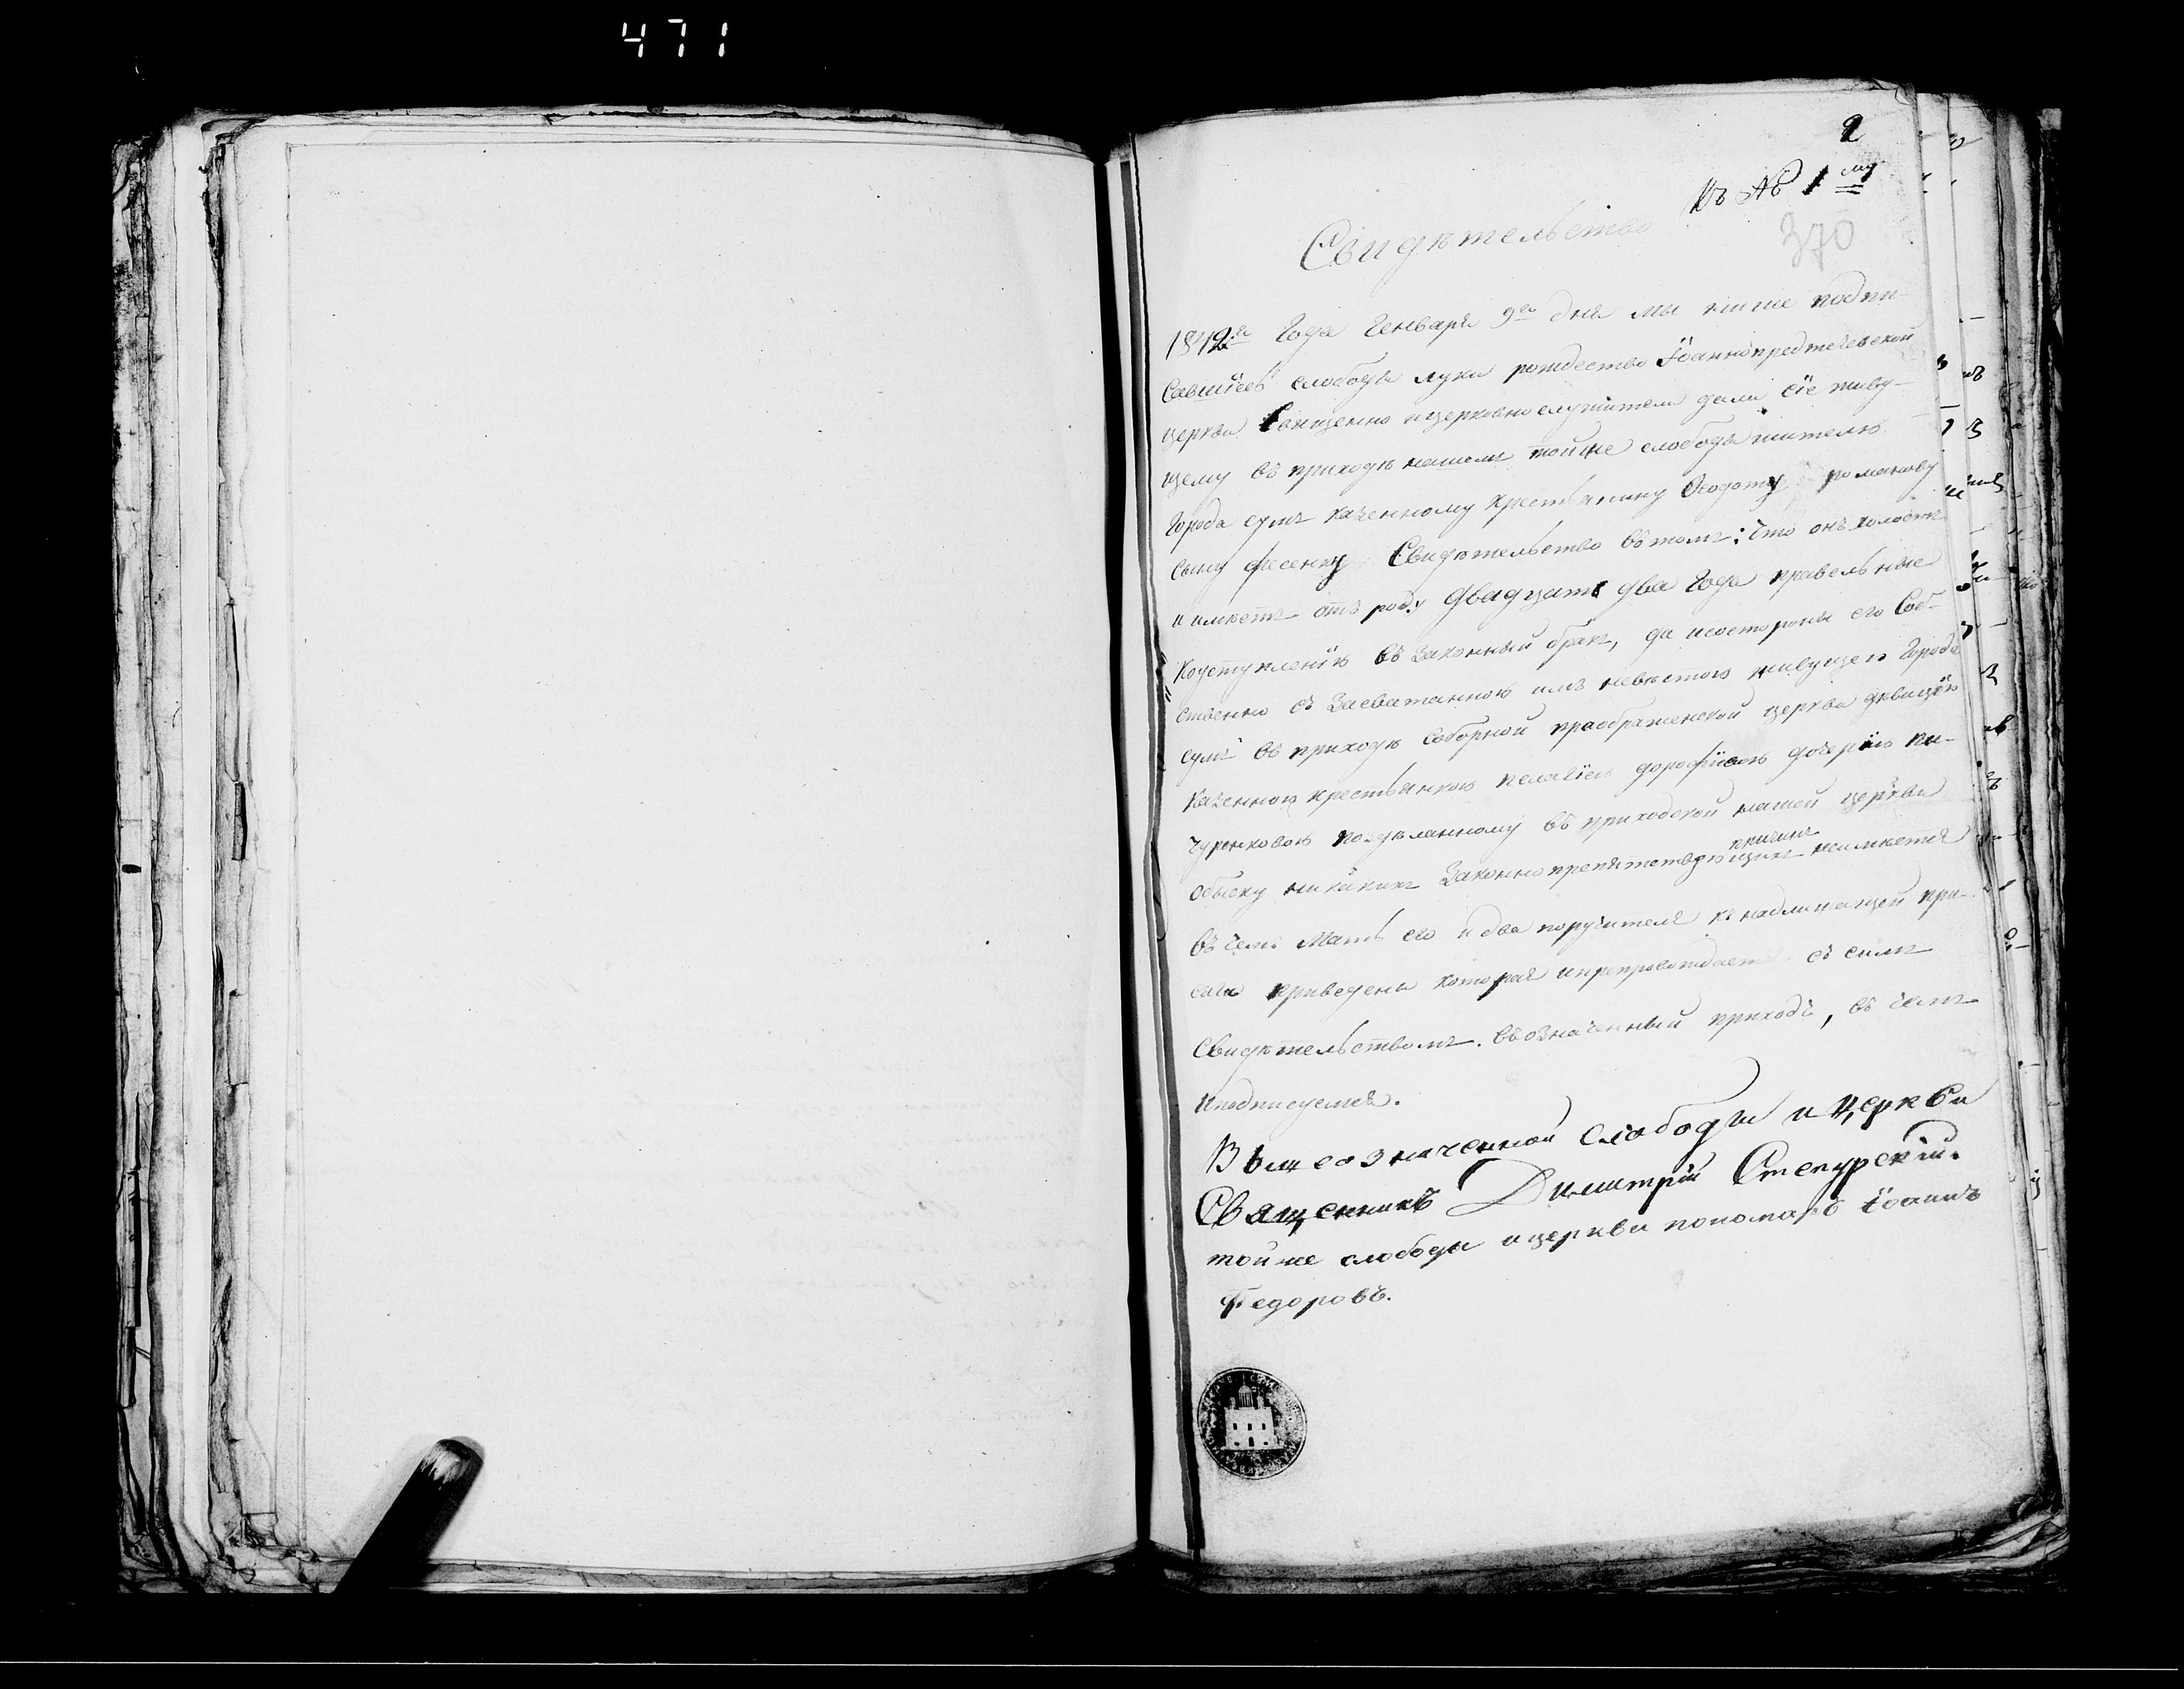 471
2
Къ № 1му
370
Свидѣтельство
1842го Года Генваря 9го дня мы ниже подпи-
савшіесь слободы луки рождество Іоаннопредтечевской
церкви Священно ицерковно служители дали сіе живу-
щему въ приходѣ нашемъ тойже слободы жителю
Города сумъ казенному крестьянину Ѳеодоту романову
сыну фесенку Свидѣтельство вътомъ: Что онъ холостъ
и имѣетъ отъ роду двадцать два Года правельные
Коуступленію въ Законный бракъ, да исостороны его Соб-
ственно съ Засватанною имъ невѣстою живущею Города
сумъ въ приходѣ Соборной праображенской церкви дѣвицею
Казенною крестьянкою пелагіею дорофіевою дочерью пи-
чуренковою поздѣланному въ приходской нашей церкви
обыску никакихъ Законно препятствующихъ причинъ неимѣется
въ чемъ Мать его и два поручителя къ надлежащей при-
сягѣ приведены которая ипрепровождается съ симъ
Свидѣтельствомъ. въозначенный приходъ, въ чемъ
иподписуемся.
Вышеозначенной слободы и церкви
Священникъ Димитрій Степурскій.
тойже слободы ицеркви пономарь Іоаннъ
Федоровъ.